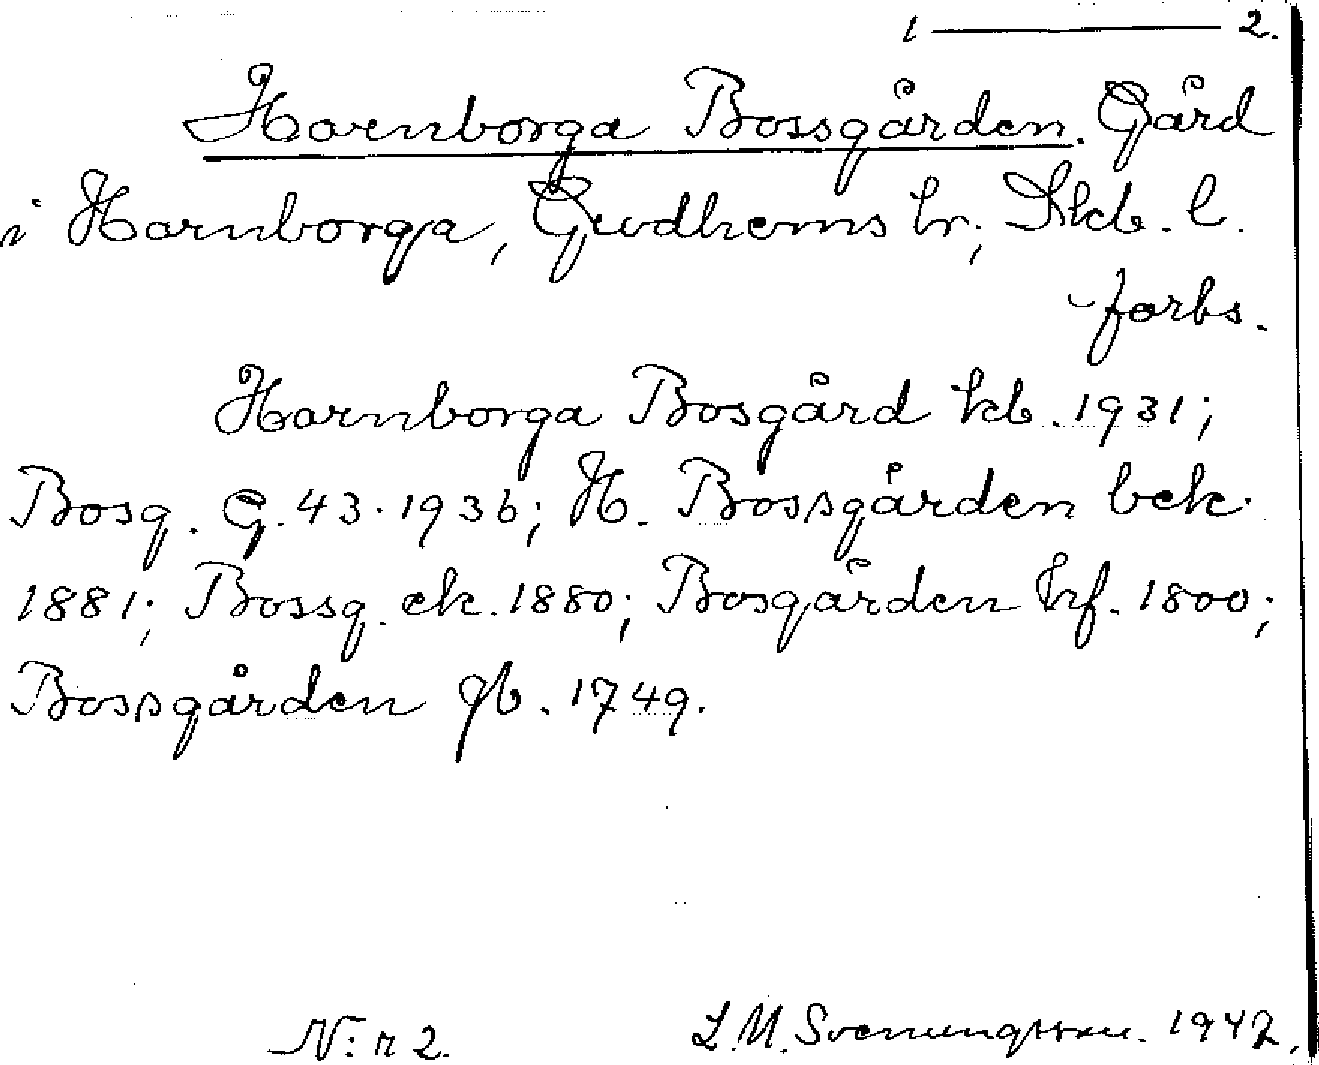 1 — 2.
Hornborga Bossgården. Gård
i Hornborga, Gudhems hr, Skb. l.
forts.
Hornborga Bosgård kb. 1931;
Bosg. G. 43. 1936; H. Bossgården bek.
1881; Bossg. ek. 1880; Bosgården hf. 1800;
Bossgården gb. 1749.
N:r 2. L.M. Svenungsson. 1947.